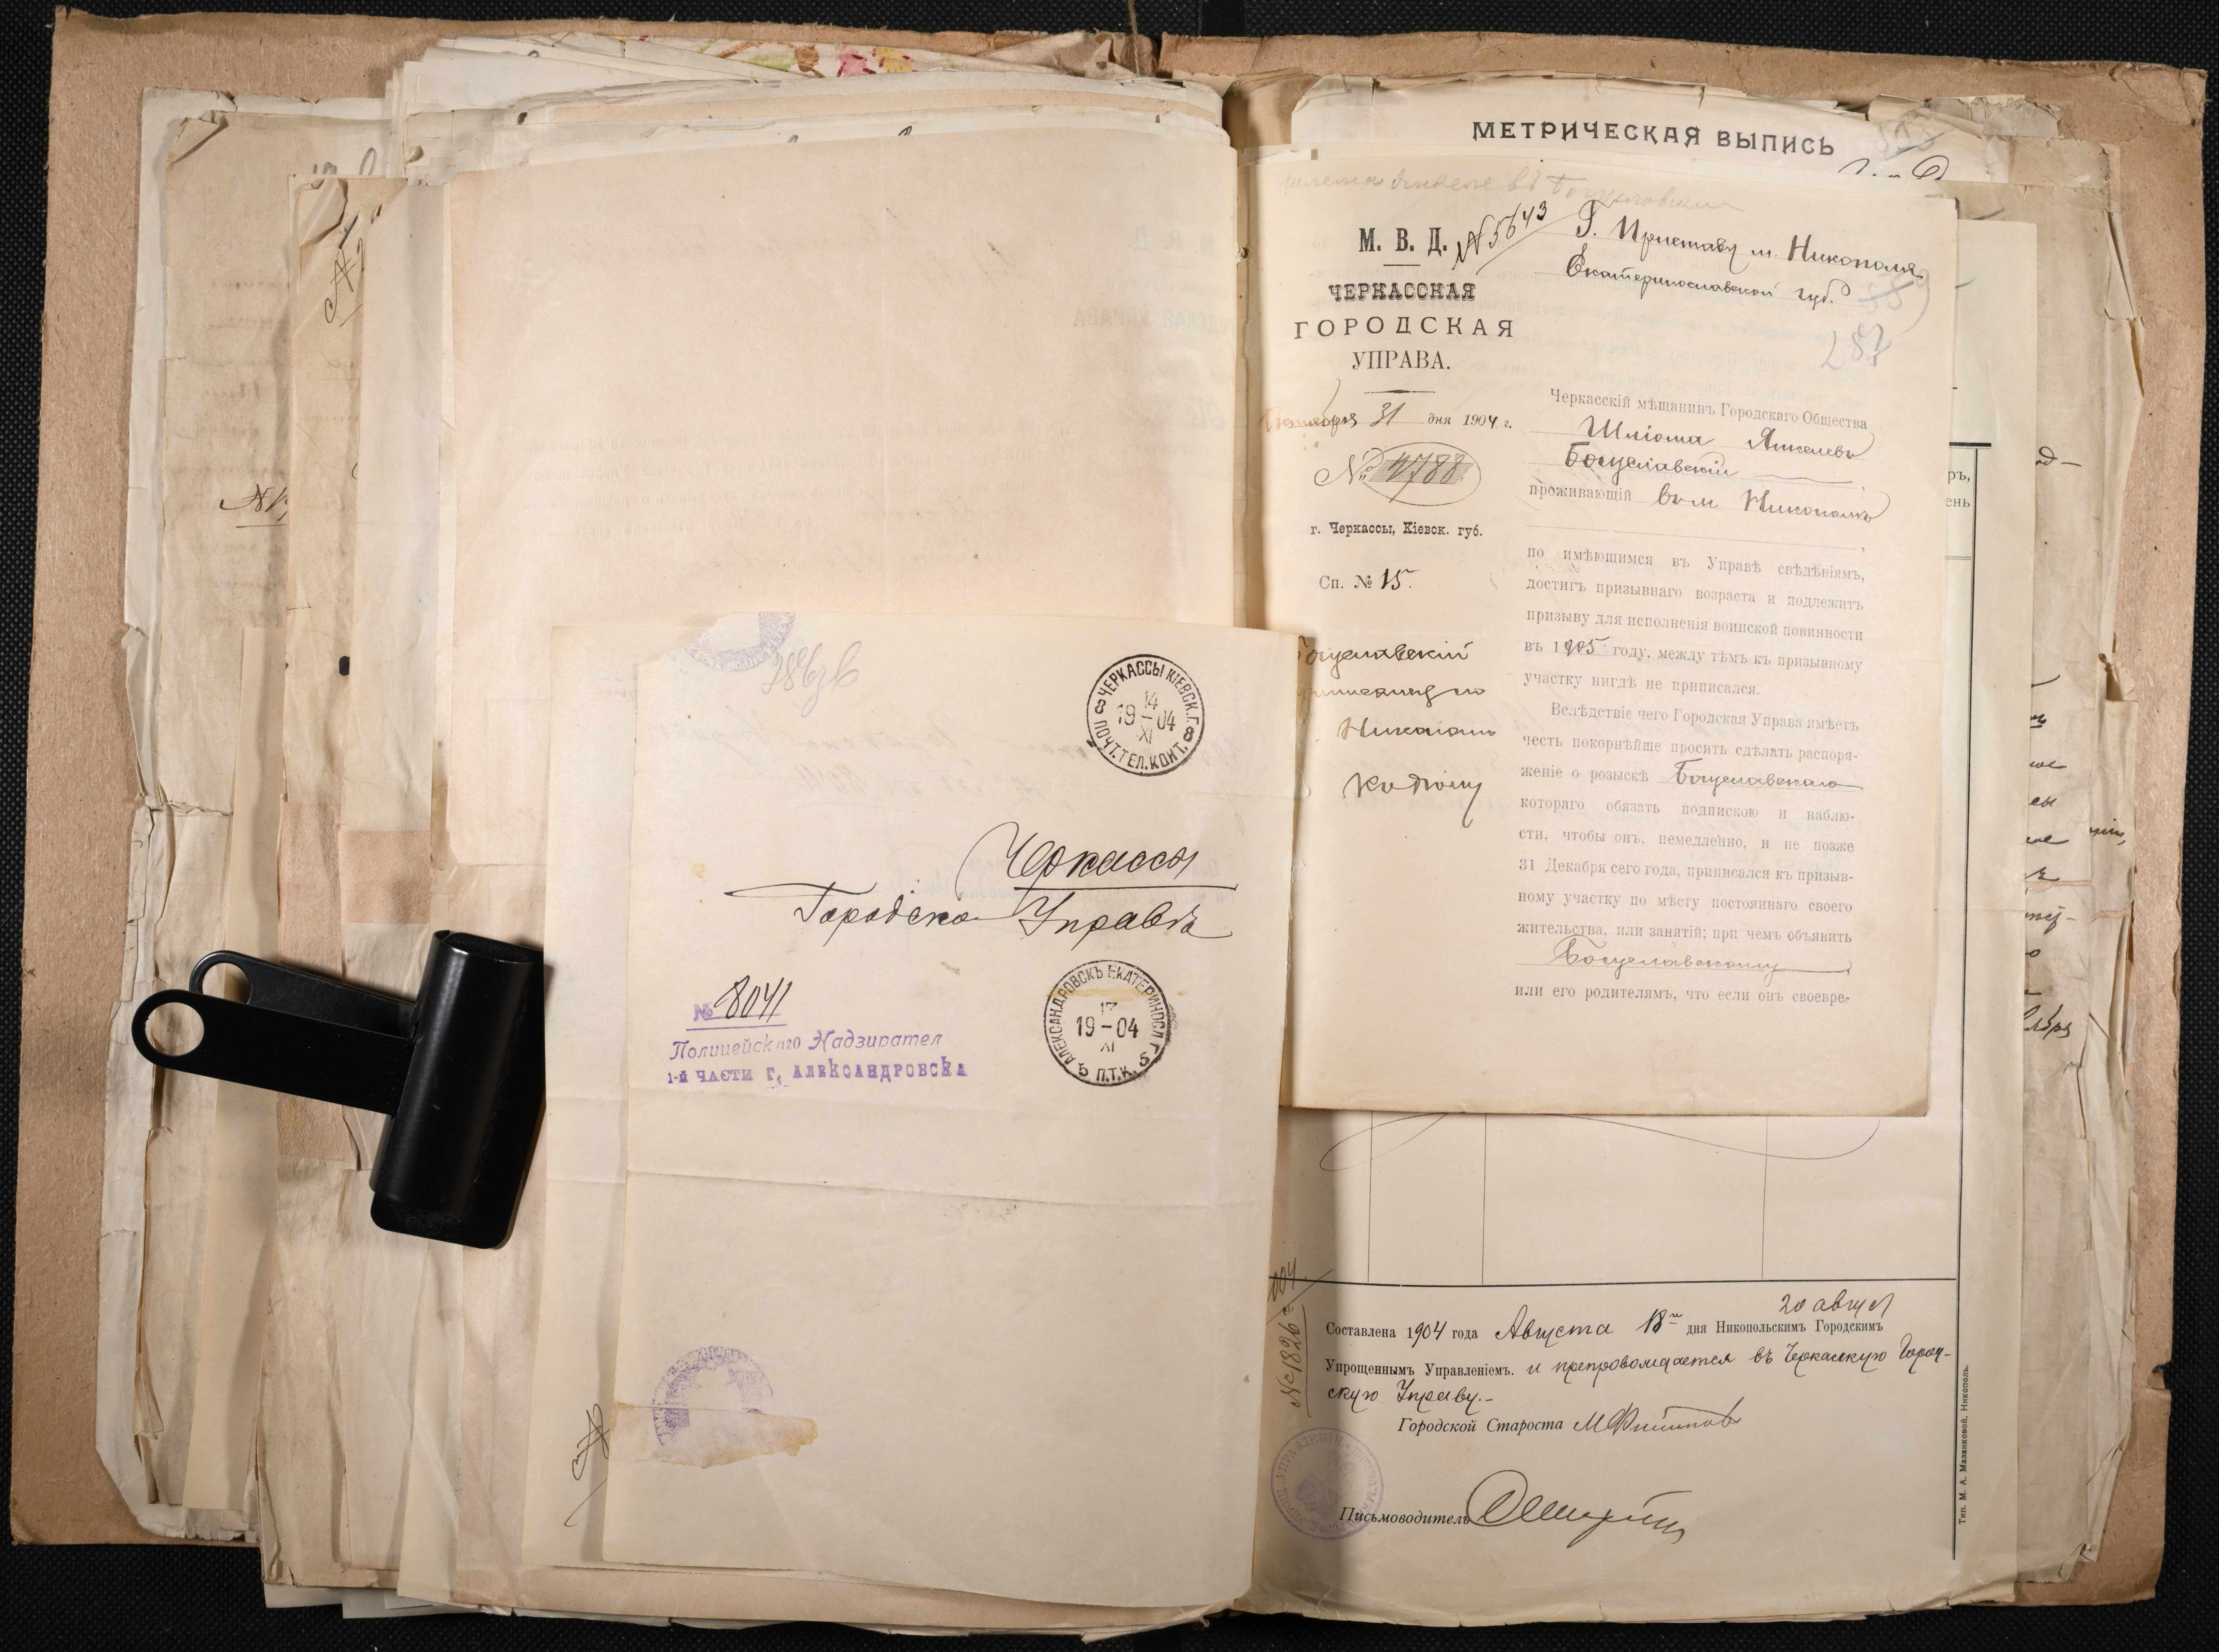 286 зв
ЧЕРКАССЫ КІЕВСК.Г.
14
19-04
XI
ПОЧТ.ТЕЛ.КОНТ.
Черкассы
Городско Управѣ
№ 8041
Полицейскаго Надзирател
1-й ЧАСТИ Г. АЛЕКСАНДРОВСКА
АЛЕКСАНДРОВСКЪ ЕКАТЕРИНОСЛ. Г.
17
19-04
XI
П.Т.К.
МЕТРИЧЕСКАЯ ВЫПИСЬ
М. В. Д. №5643
ЧЕРКАССКАЯ
ГОРОДСКАЯ
УПРАВА.
Октября 31 дня 1904 г.
№ 4788
г. Черкассы, Кіевск. губ.
Сп. № 15.
Богуславскій
Никополь
Г. Приставу м. Никополя
Екатеринославской губ.
287
Черкасскій мѣщанинъ Городскаго Общества
Шліома Янкелевъ
Богуславскій
проживающій въ м Никополѣ
по имѣющимся въ Управѣ свѣдѣніямъ,
достигъ призывнаго возраста и подлежитъ
призыву для исполненія воинской повинности
въ 1905 году, между тѣмъ къ призывному
участку нигдѣ не приписался.
Вслѣдствіе чего Городская Управа имѣетъ
честь покорнѣйше просить сдѣлать распоря-
женіе о розыскѣ Богуславскаго
котораго обязать подпискою и наблю-
сти, чтобы онъ, немедленно, и не позже
31 Декабря сего года, приписался къ призыв-
ному участку по мѣсту постояннаго своего
жительства, или занятій; при чемъ объявить
Богуславскому
или его родителямъ, что если онъ своевре-
№ 1826
20 август
Составлена 1904 года Августа 18 дня Никопольскимъ Городскимъ
Упрощеннымъ Управленіемъ. и препровождается въ Черкасскую Город-
скую Управу.-
Городской Староста
Письмоводитель
Тип. М. А. Мазанковой, Никополь.